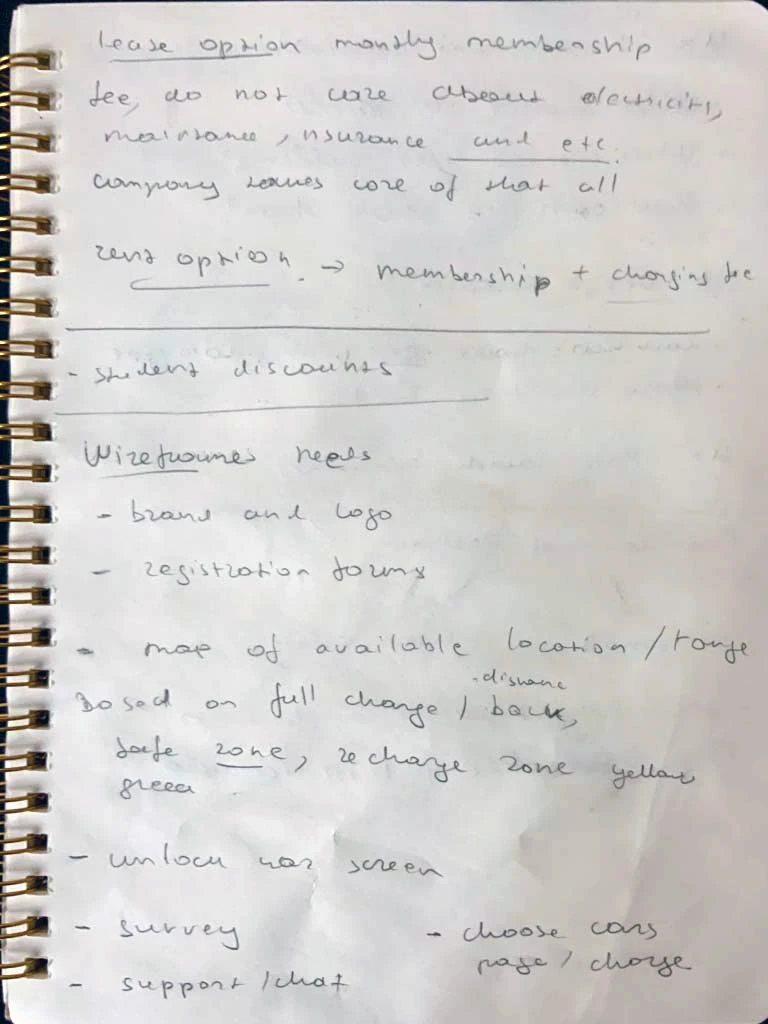 lease option montly membership
fee, do not care about electricity,
maintance, insurance and etc.
company takes care of that all
rent option. → membership + charging fee
- student discounts
Wireframes needs
- brand and logo
- registration forms
- map of available location / range
- distance
based on full charge / back,
safe zone, recharge zone yellow
green
- unlock car screen
- survey
- support / chat
- choose cars
page / charge